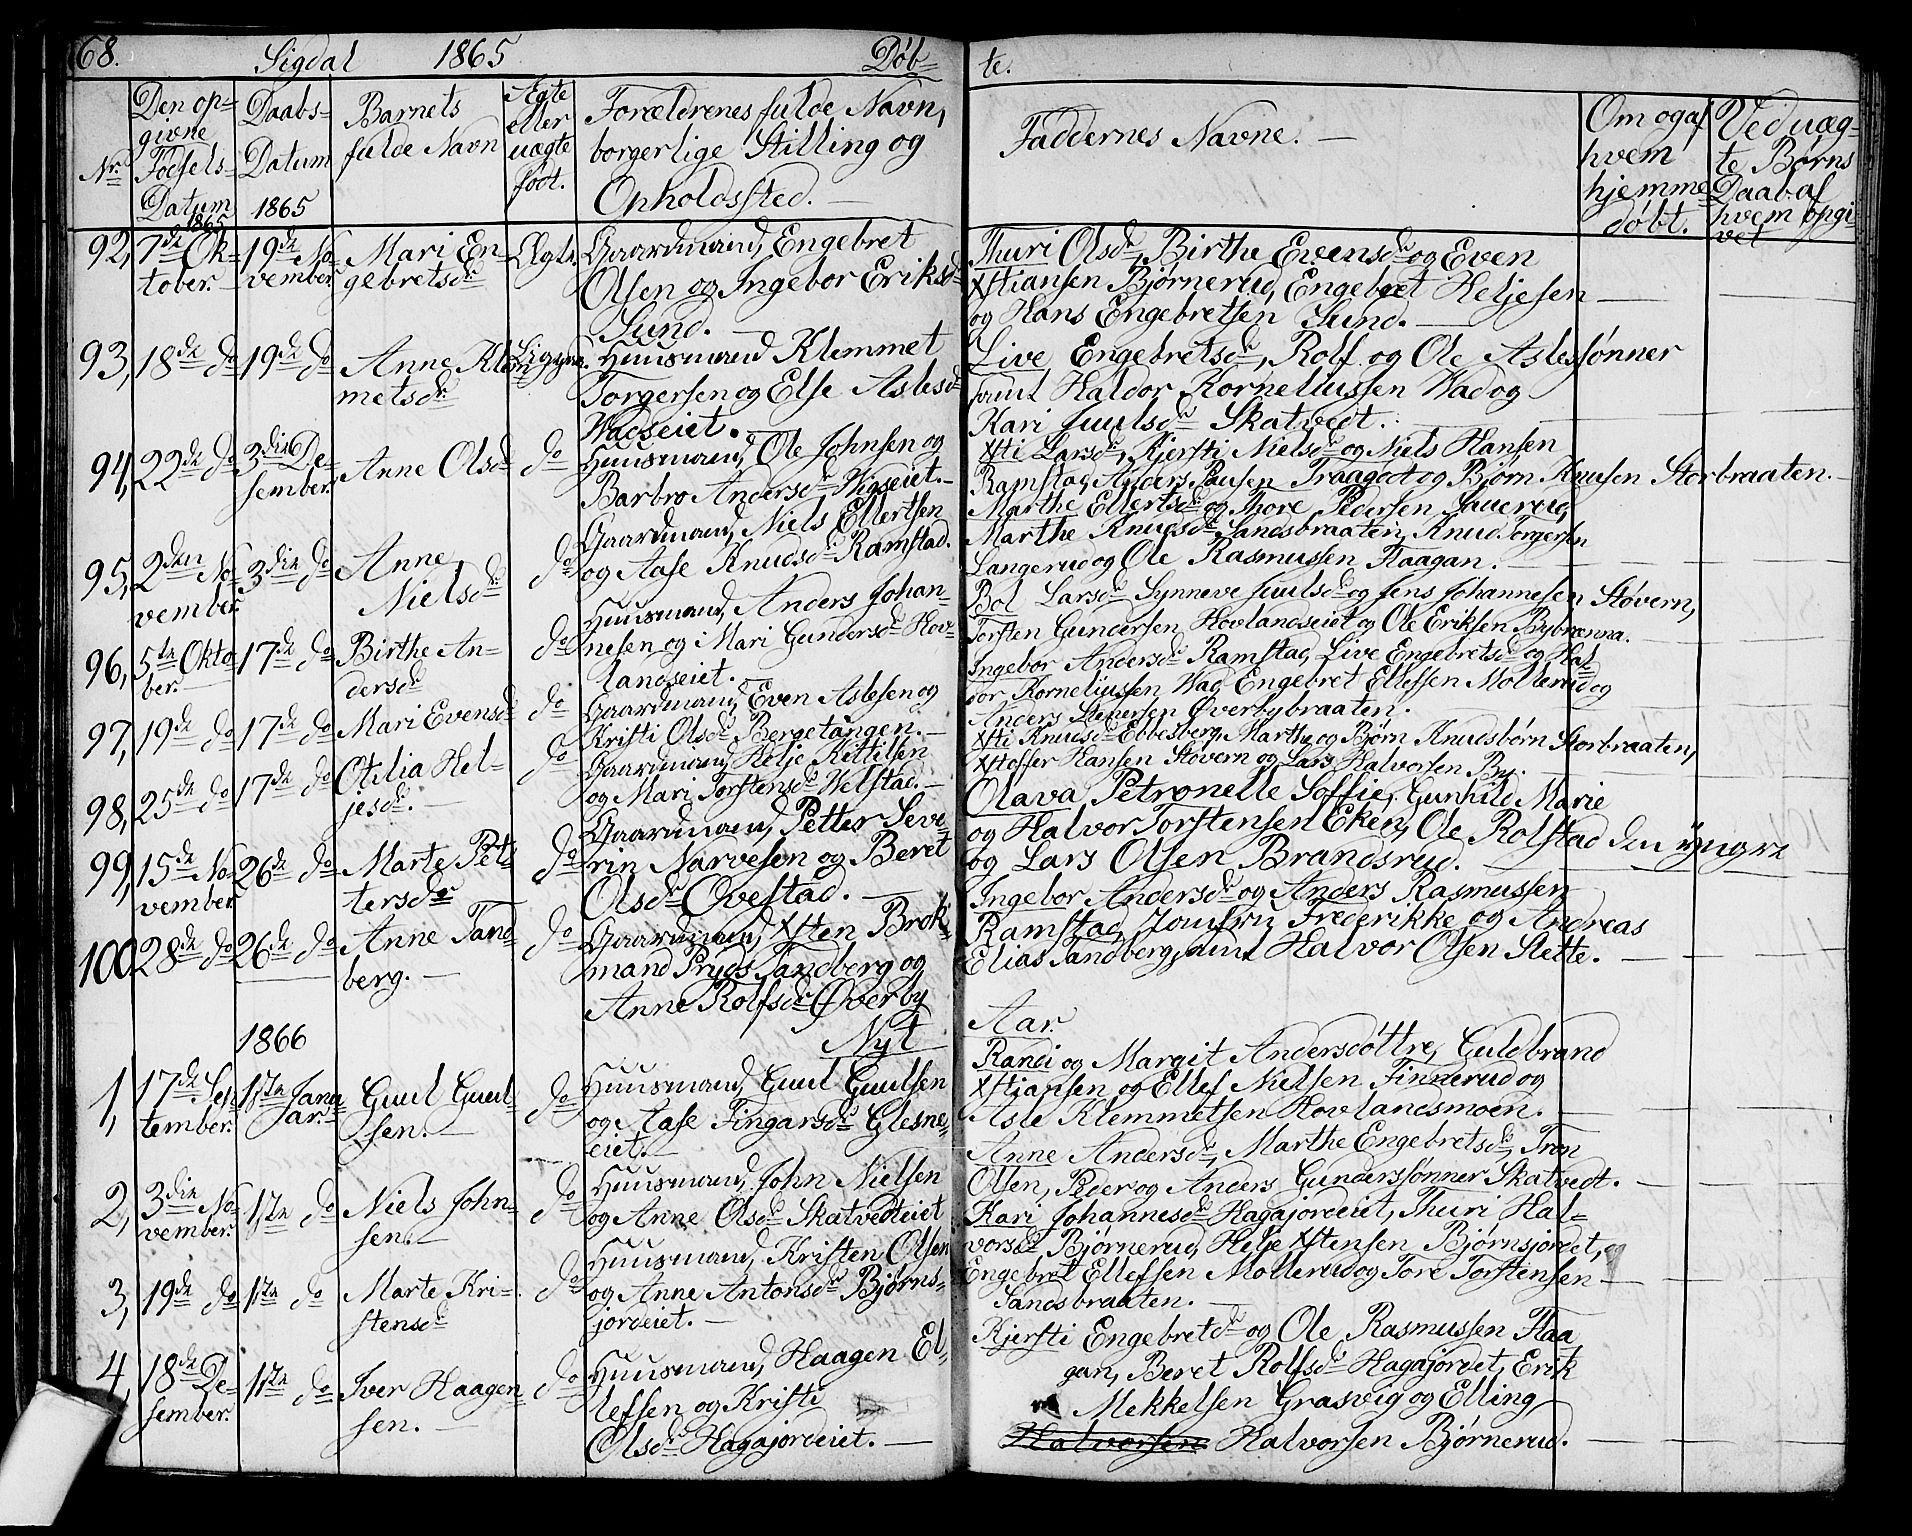 68. Sigdal 1865 Døb-
te.
Nr.
Den op-
givne
Fødsels-
Datum
1865
Daabs-
Datum
1865
Barnets
fulde Navn
Ægte
eller
uægte
født.
Forældrenes fulde Navn,
borgerlige Stilling og
Opholdssted. —
Faddernes Navne. —
Om og af
hvem
hjemme
døbt.
Ved uæg-
te Børns
Daab af
hvem opgi-
vet
92, 7de Ok-
tober.
19de No-
vember.
Mari En-
gebretsdr
Ægte.
Gaardmand, Engebret
Olsen og Ingebor Eriksdr
Lund. —
Thuri Olsdr, Birthe Evensdr og Even
Xstiansen Bjørnerud, Engebret Heljesen
og Hans Engebretsen Lund. —
93, 18de do
19de do
Anne Klem-
metsdr
Huusmand Klemmet
Torgersen og Else Aslesdr
Wadseiet. —
Live Engebretsdr, Rolf og Ole Aslessønner
samt Haldor Korneliussen Wad og
Kari Juulsdr Skatvedt.
94, 22de do
3die De-
sember.
Anne Olsdr
do
Huusmand, Ole Johnsen og
Barbro Andersdr Wigseiet. —
Xsti Larsdr, Kjersti Nielsdr og Niels Hansen
Ramstad, Anders Paulsen Traagodt og Bjørn Knusen Storbraaten. —
95, 2den No-
vember.
3die do
Anne
Nielsdr
do
Gaardmand, Niels Ellertsen
og Aase Knudsdr Ramstad.
Marthe Ellertsdr og Thore Pedersen Sauerud,
Marthe Knudsdr Sandsbraaten, Knud Torgersen
Langerud og Ole Rasmussen Haagan. —
96, 5te Okto-
ber. —
17de do
Birthe An-
dersdr
do
Huusmand, Anders Johan-
nesen og Mari Gundersdr Hov-
landseiet. —
Bol Larsdr Synneve Juulsdr og Jens Johannesen Støvern,
Torsten Gundersen Hovlandseiet og Ole Eriksen Bybrænna.
97, 19de do
17de do
Mari Evensdr
do
Gaardmand, Even Aslesen og
Kristi Olsdr Bergetangen. —
Ingebor Andersdr Ramstad, Live Engebretsdr og Hal-
dor Korneliussen Wad, Engebret Ellefsen Møllerud og
Anders Stenersen Øverbybraaten.
98, 25de do
17de do
Otilia Hel-
jesdr. —
do
Gaardmand, Helje Kittilsen
og Mari Torstensdr Welstad. —
Xsti Knudsdr Ebbesberg, Marthe og Bjørn Knudsbørn Storbraaten,
Xstoffer Hansen Støvern og Lars Halvorsen By.
99, 15de No-
vember
26de do
Marte Pet-
tersdr
do
Gaardmand, Petter Seve-
rin Narvesen og Beret
Olsdr Ovestad. —
Olava Petronelle Soffie, Gunhild Marie
og Halvor Torstensen Eken, Ole Rolstad den yngre
og Lars Olsen Brandsrud.
100 28de do
26de do
Anne Tand-
berg. —
do
Gaardmand, Xsten Brok-
mand Pryds Tandberg og
Anne Rolfsdr Øverby
Ingebor Andersdr og Anders Rasmussen
Ramstad, Jomfru Frederikke og Andreas
Elias Tandberg, samt Halvor Olsen Slette. —
1866
Nyt
Aar.
1, 17de Sep-
tember.
1ste Janu-
ar.
Guul Guul-
sen. —
do
Huusmand, Guul Guulsen
og Aase Fingarsdr Glesne-
eiet. —
Randi og Margit Andersdøttre, Guldbrand
Xstiansen og Ellef Nielsen Finnerud og
Asle Klemmetsen Hovlandsmoen. —
2, 3die No-
vember.
1ste do
Niels John-
sen. —
do
Huusmand, John Nielsen
og Anne Olsdr Skatvedteiet
Anne Andersdr, Marthe Engebretsdr, Tron
Olsen, Peder og Anders Gunderssønner Skatvedt. —
3, 19de do
1ste do
Marte Kri-
stensdr
do
Huusmand, Kristen Olsen
og Anne Antonsdr Bjørns-
jordeiet. —
Kari Johannesdr Hagajordeiet, Thuri Hal-
vorsdr, Bjørnerud, Helje Xstensen Bjørnsjordet, og
Engebret Ellefsen Møllerud og Tore Torstensen
Sandsbraaten. —
4, 18de De-
sember.
1ste do
Iver Haagen-
sen. —
do
Huusmand, Haagen El-
lefsen og Kristi
Olsdr Hagajordeiet. —
Kjersti Engebretdr og Ole Rasmussen Haa-
gan, Beret Rolfsdr Hagajordet, Erik
Mekkelsen Grasvig og Elling
Halvorsen Halvorsen Bjørnerud.